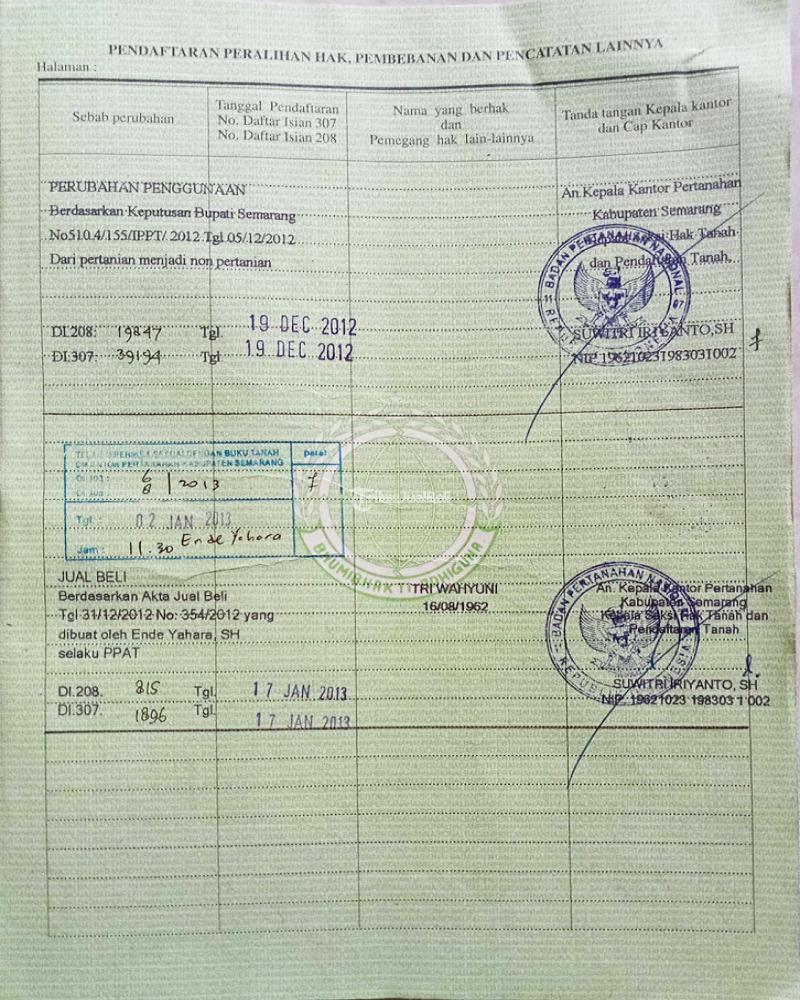 PENDAFTARAN PERALIHAN HAK, PEMBEBANAN DAN PENCATATAN LAINNYA
Halaman :
Sebab perubahan
Tanggal Pendaftaran
No. Daftar Isian 307
No. Daftar Isian 208
Nama yang berhak
dan
Pemegang hak lain-lainnya
Tanda tangan Kepala kantor
dan Cap Kantor
PERUBAHAN PENGGUNAAN
Berdasarkan Keputusan Bupati Semarang
No510.4/155/IPPT/ 2012 Tgl 05/12/2012
Dari pertanian menjadi non pertanian
An.Kepala Kantor Pertanahan
Kabupaten Semarang
Hak Tanah
dan Pendaftaran Tanah,
BADAN PERTANAHAN NASIONAL
REPUBLIK INDONESIA
11 07
SUWITRI IRIYANTO,SH
NIP. 196210231983031002
DI.208: 19847 Tgl. 19 DEC 2012
DI.307: 39194 Tgl 19 DEC 2012
TELAH DIPERIKSA SESUAI DENGAN BUKU TANAH
DI KANTOR PERTANAHAN KABUPATEN SEMARANG
paraf
6/8 / 2013
Tgl : 02 JAN 2013
Jam : 11.30 Ende Yahara
BHUMIBHAKTI ADHIGUNA
JUAL BELI
Berdasarkan Akta Jual Beli
Tgl 31/12/2012 No: 354/2012 yang
dibuat oleh Ende Yahara, SH
selaku PPAT
TRI WAHYUNI
16/08/1962
An. Kepala Kantor Pertanahan
Kabupaten Semarang
Kepala Seksi Hak Tanah dan
Pendaftaran Tanah
BADAN PERTANAHAN NASIONAL
REPUBLIK INDONESIA
SUWITRI IRIYANTO, SH
NIP. 19621023 198303 1 002
DI.208. 815 Tgl. 17 JAN 2013
DI.307. 1896 Tgl. 17 JAN 2013